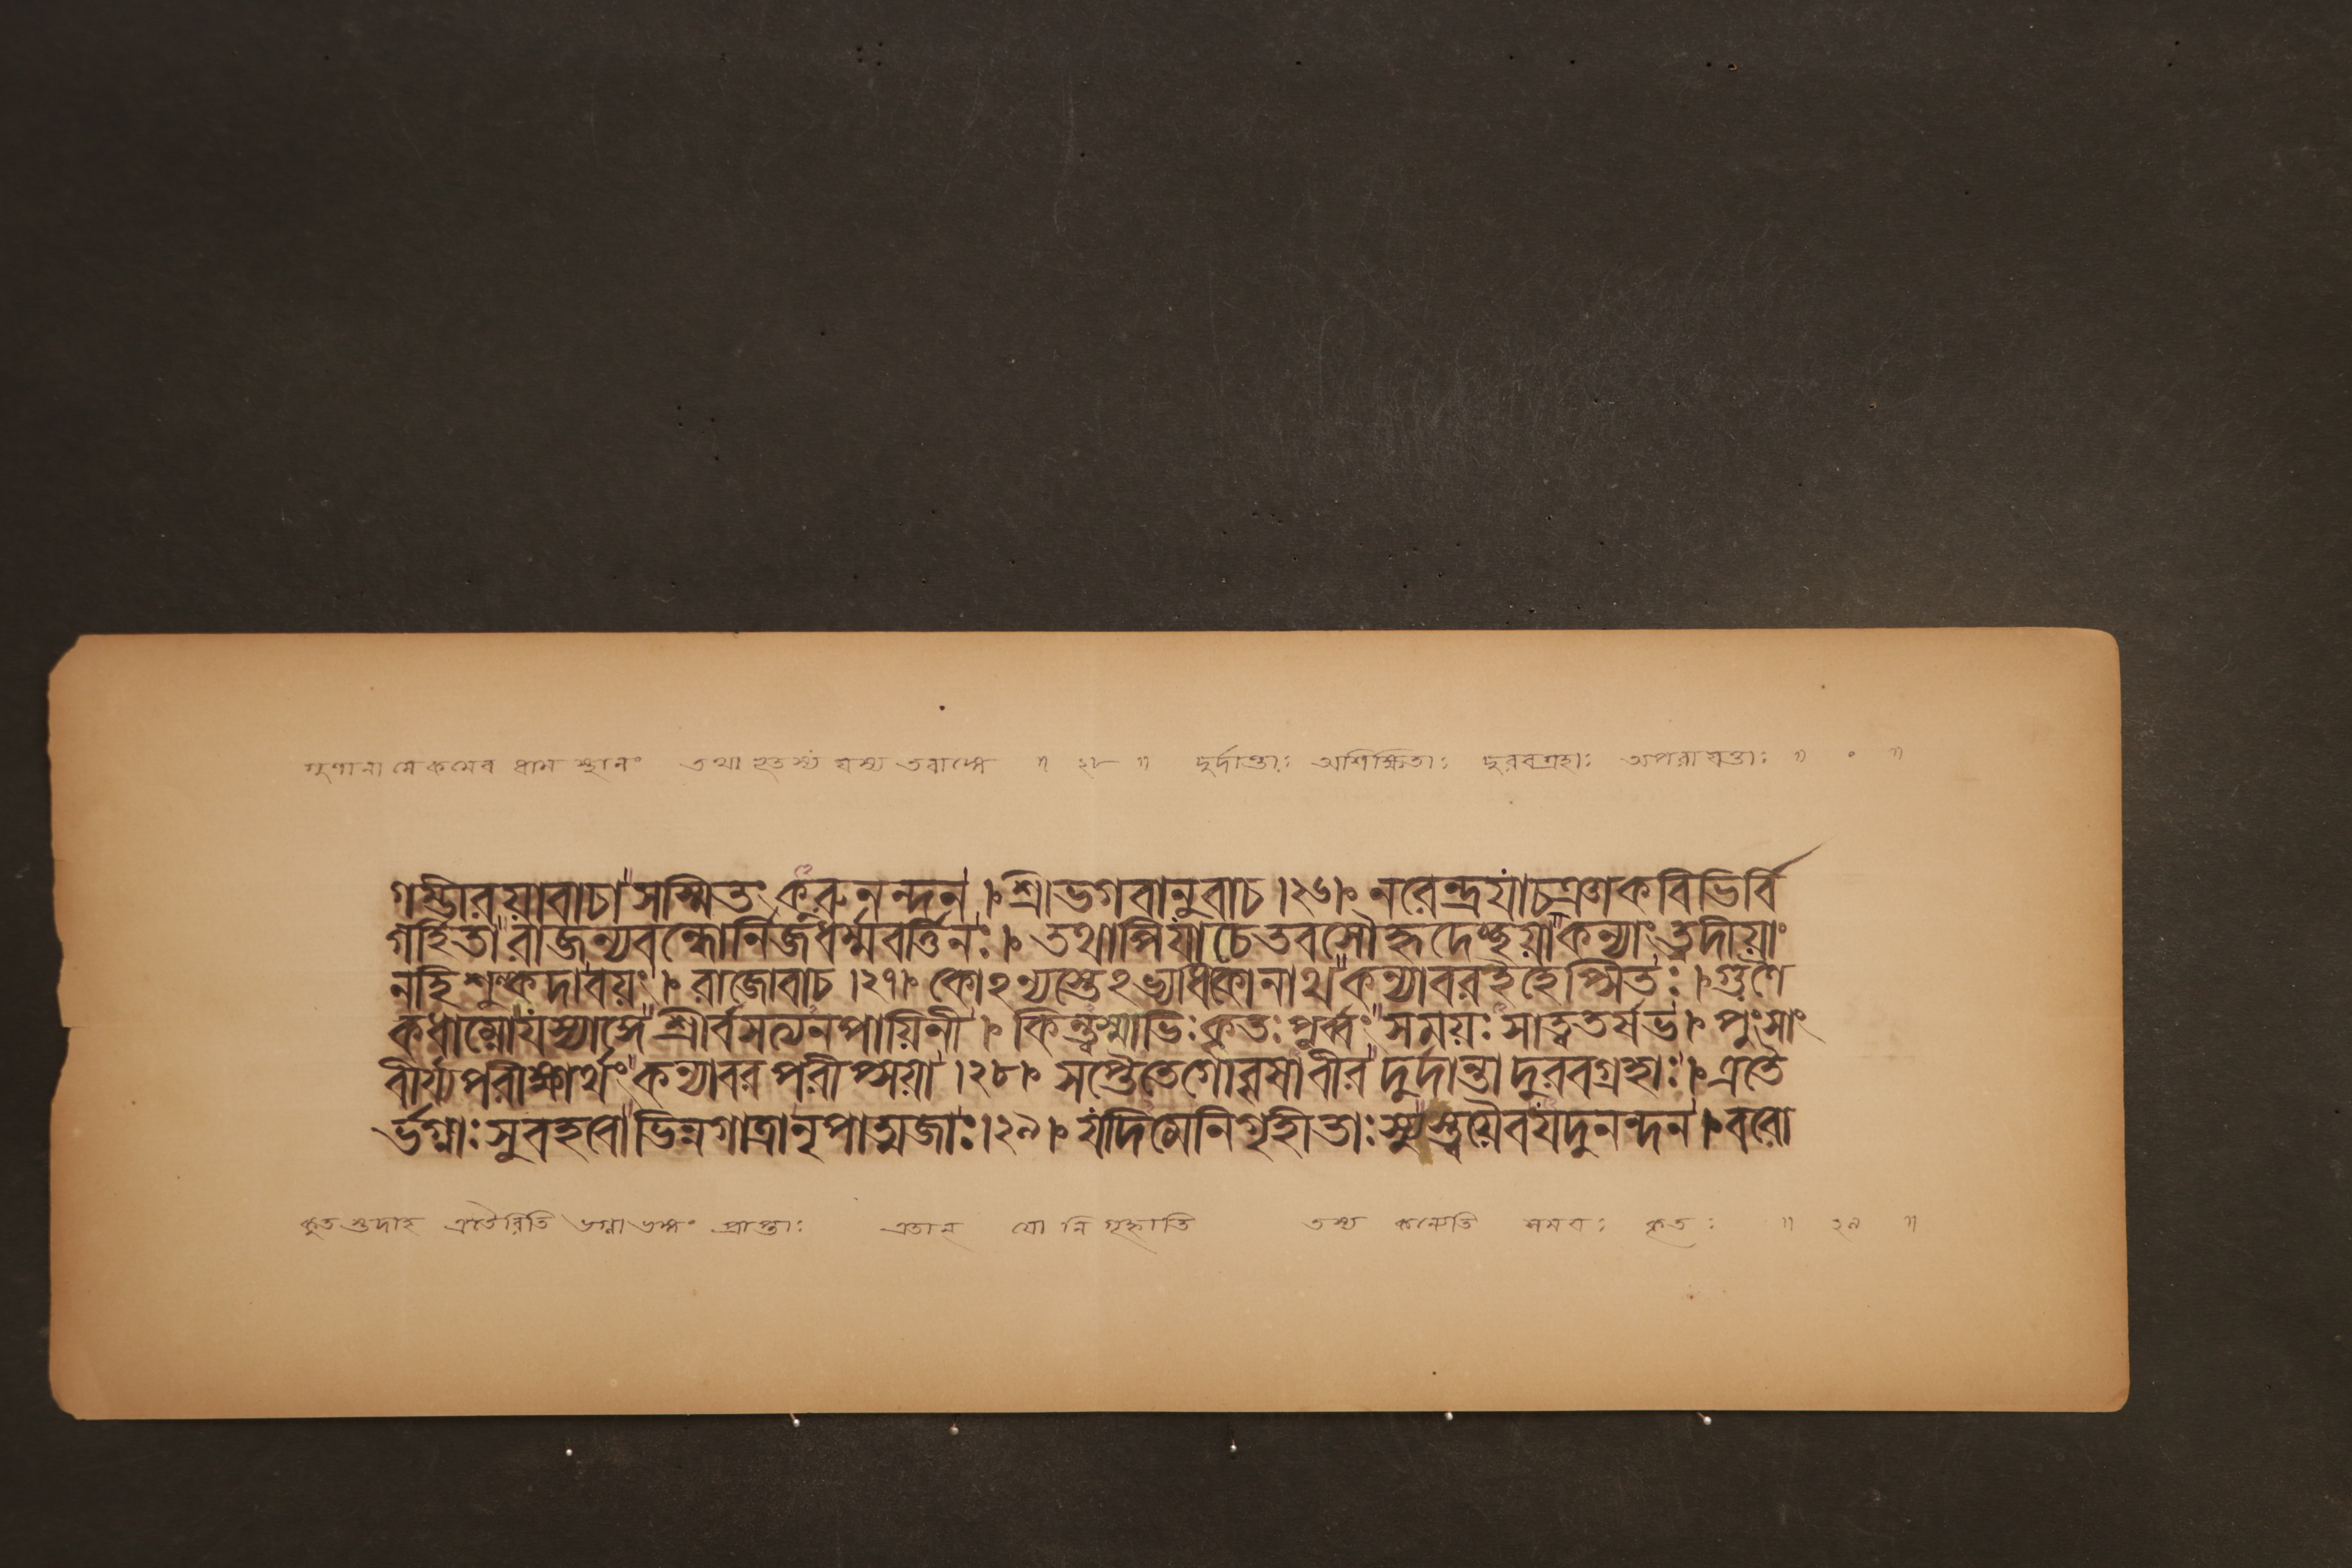 গুণানামেকমেব ধাম স্থানং তথা ভূতস্য যস্য তবাঙ্গে ॥ ২৮ ॥ দুর্দান্তাঃ অশিক্ষিতাঃ দুরবগ্রহাঃ অপরায়ত্তাঃ ॥ ॰ ॥
গম্ভীরয়াবাচা সস্মিতং কুরুনন্দন । শ্রীভগবানুবাচ ।২৬। নরেন্দ্রযাচ্ঞাকবিভির্বি
গর্হিতা রাজন্যবন্ধোর্নিজধর্ম্মবর্ত্তিনঃ । তথাপিযাচেতবসৌহৃদেচ্ছয়া কন্যাং ত্বদীয়াং
নহিশুল্কদাবয়ং । রাজোবাচ ।২৭। কোঽন্যস্তেঽভ্যধিকোনাথ কন্যাবরইহেপ্সিতঃ । গুণৈ
কধাম্নোযস্যাঙ্গে শ্রীর্বসত্যনপায়িনী । কিন্ত্বস্মাভিঃ কৃতঃ পূর্ব্বং সময়ঃ সাত্বতর্ষভ । পুংসাং
বীর্য্যপরীক্ষার্থং কন্যাবরপরীপ্সয়া ।২৮। সপ্তৈতেগোবৃষাবীর দুর্দান্তা দুরবগ্রহাঃ । এতৈ
র্ভগ্নাঃ সুবহবো ভিন্নগাত্রানৃপাত্মজাঃ ।২৯। যদিমেনিগৃহীতাঃ স্যুস্ত্বয়ৈবযদুনন্দন । বরো
এতৈরিতি ভগ্নাভঙ্গং প্রাপ্তাঃ এতান্ যো নিগৃহ্নাতি তস্য কন্যেতি সময়ঃ কৃতঃ ॥ ২৯ ॥